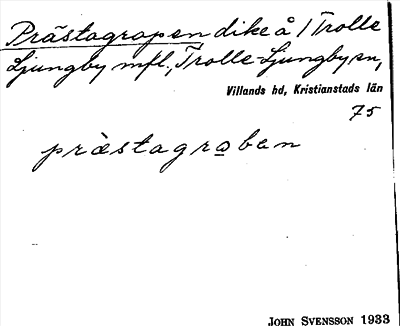 Prästagrapen dike å 1 Trolle
Ljungby mfl., Trolle-Ljungby sn,
Villands hd, Kristianstads län
75
prästagraban
JOHN SVENSSON 1933